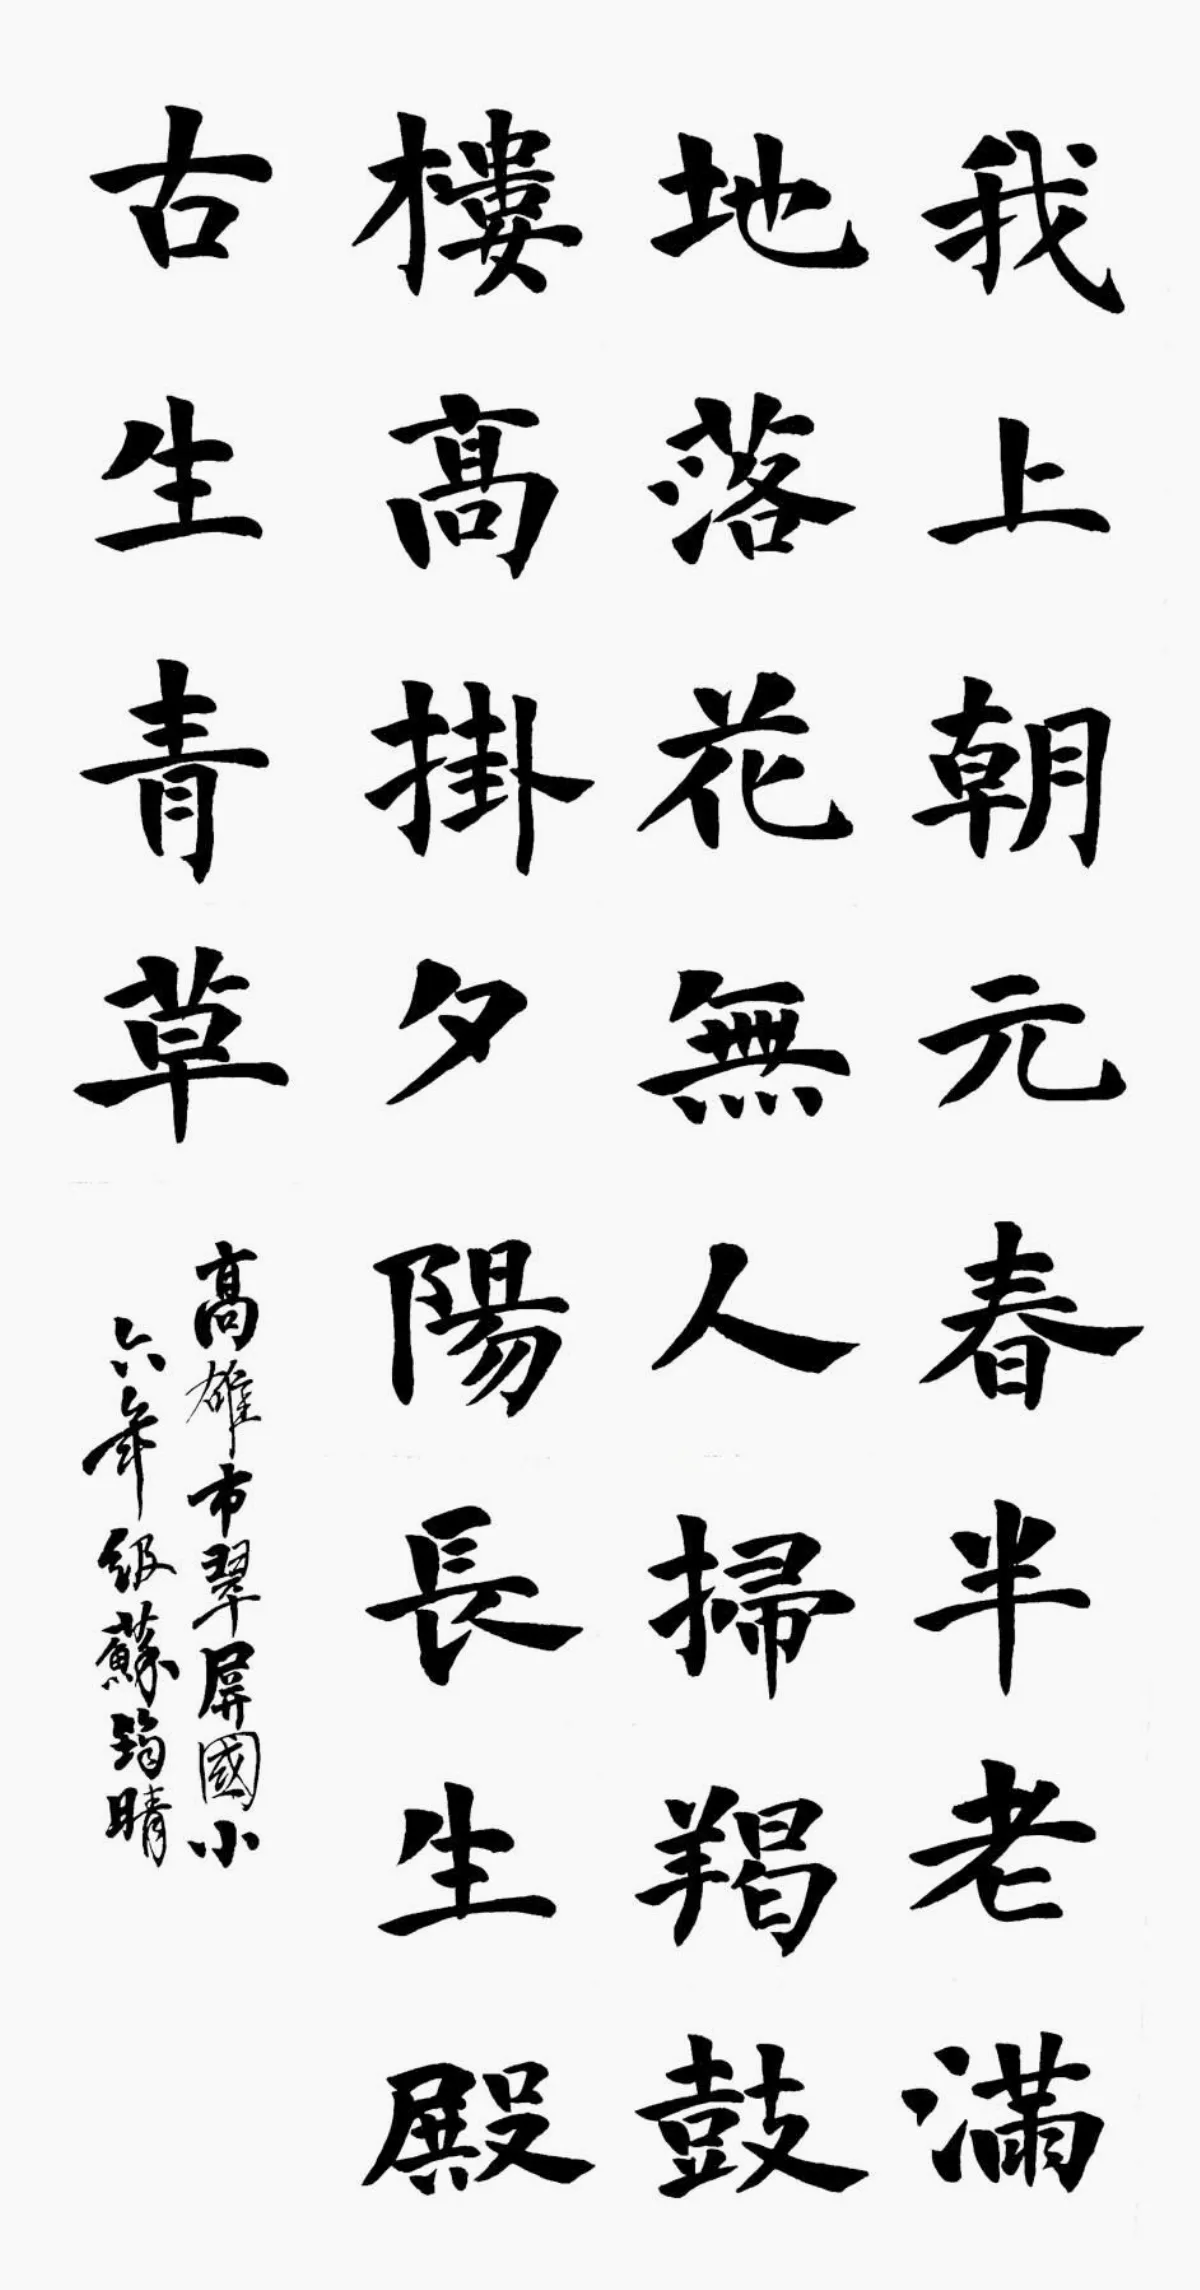 我上朝元春半老滿
地落花無人掃羯鼓
樓高掛夕陽長生殿
古生青草
高雄市翠屏國小
六年級蘇筠晴